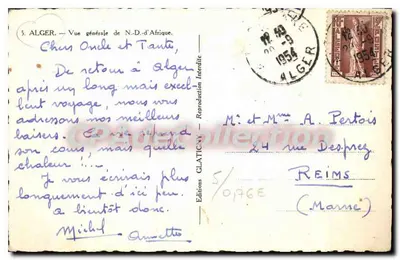 5. ALGER. — Vue générale de N.-D.-d'Afrique.
Chers Oncle et Tante,
De retour à Alger
après un long mais excel-
lent voyage, nous vous
adressons nos meilleurs
baisers. Et
son cours, mais quelle
chaleur !!!
Je vous écrirais plus
longuement d'ici peu.
à bientôt donc.
Michel Annette
Editions GLATICA Reproduction Interdite
12 40
9
1954
ALGER
1954
ALGER
Mr et Mme A. Pertois
24 rue Desprez
REIMS
(Marne)